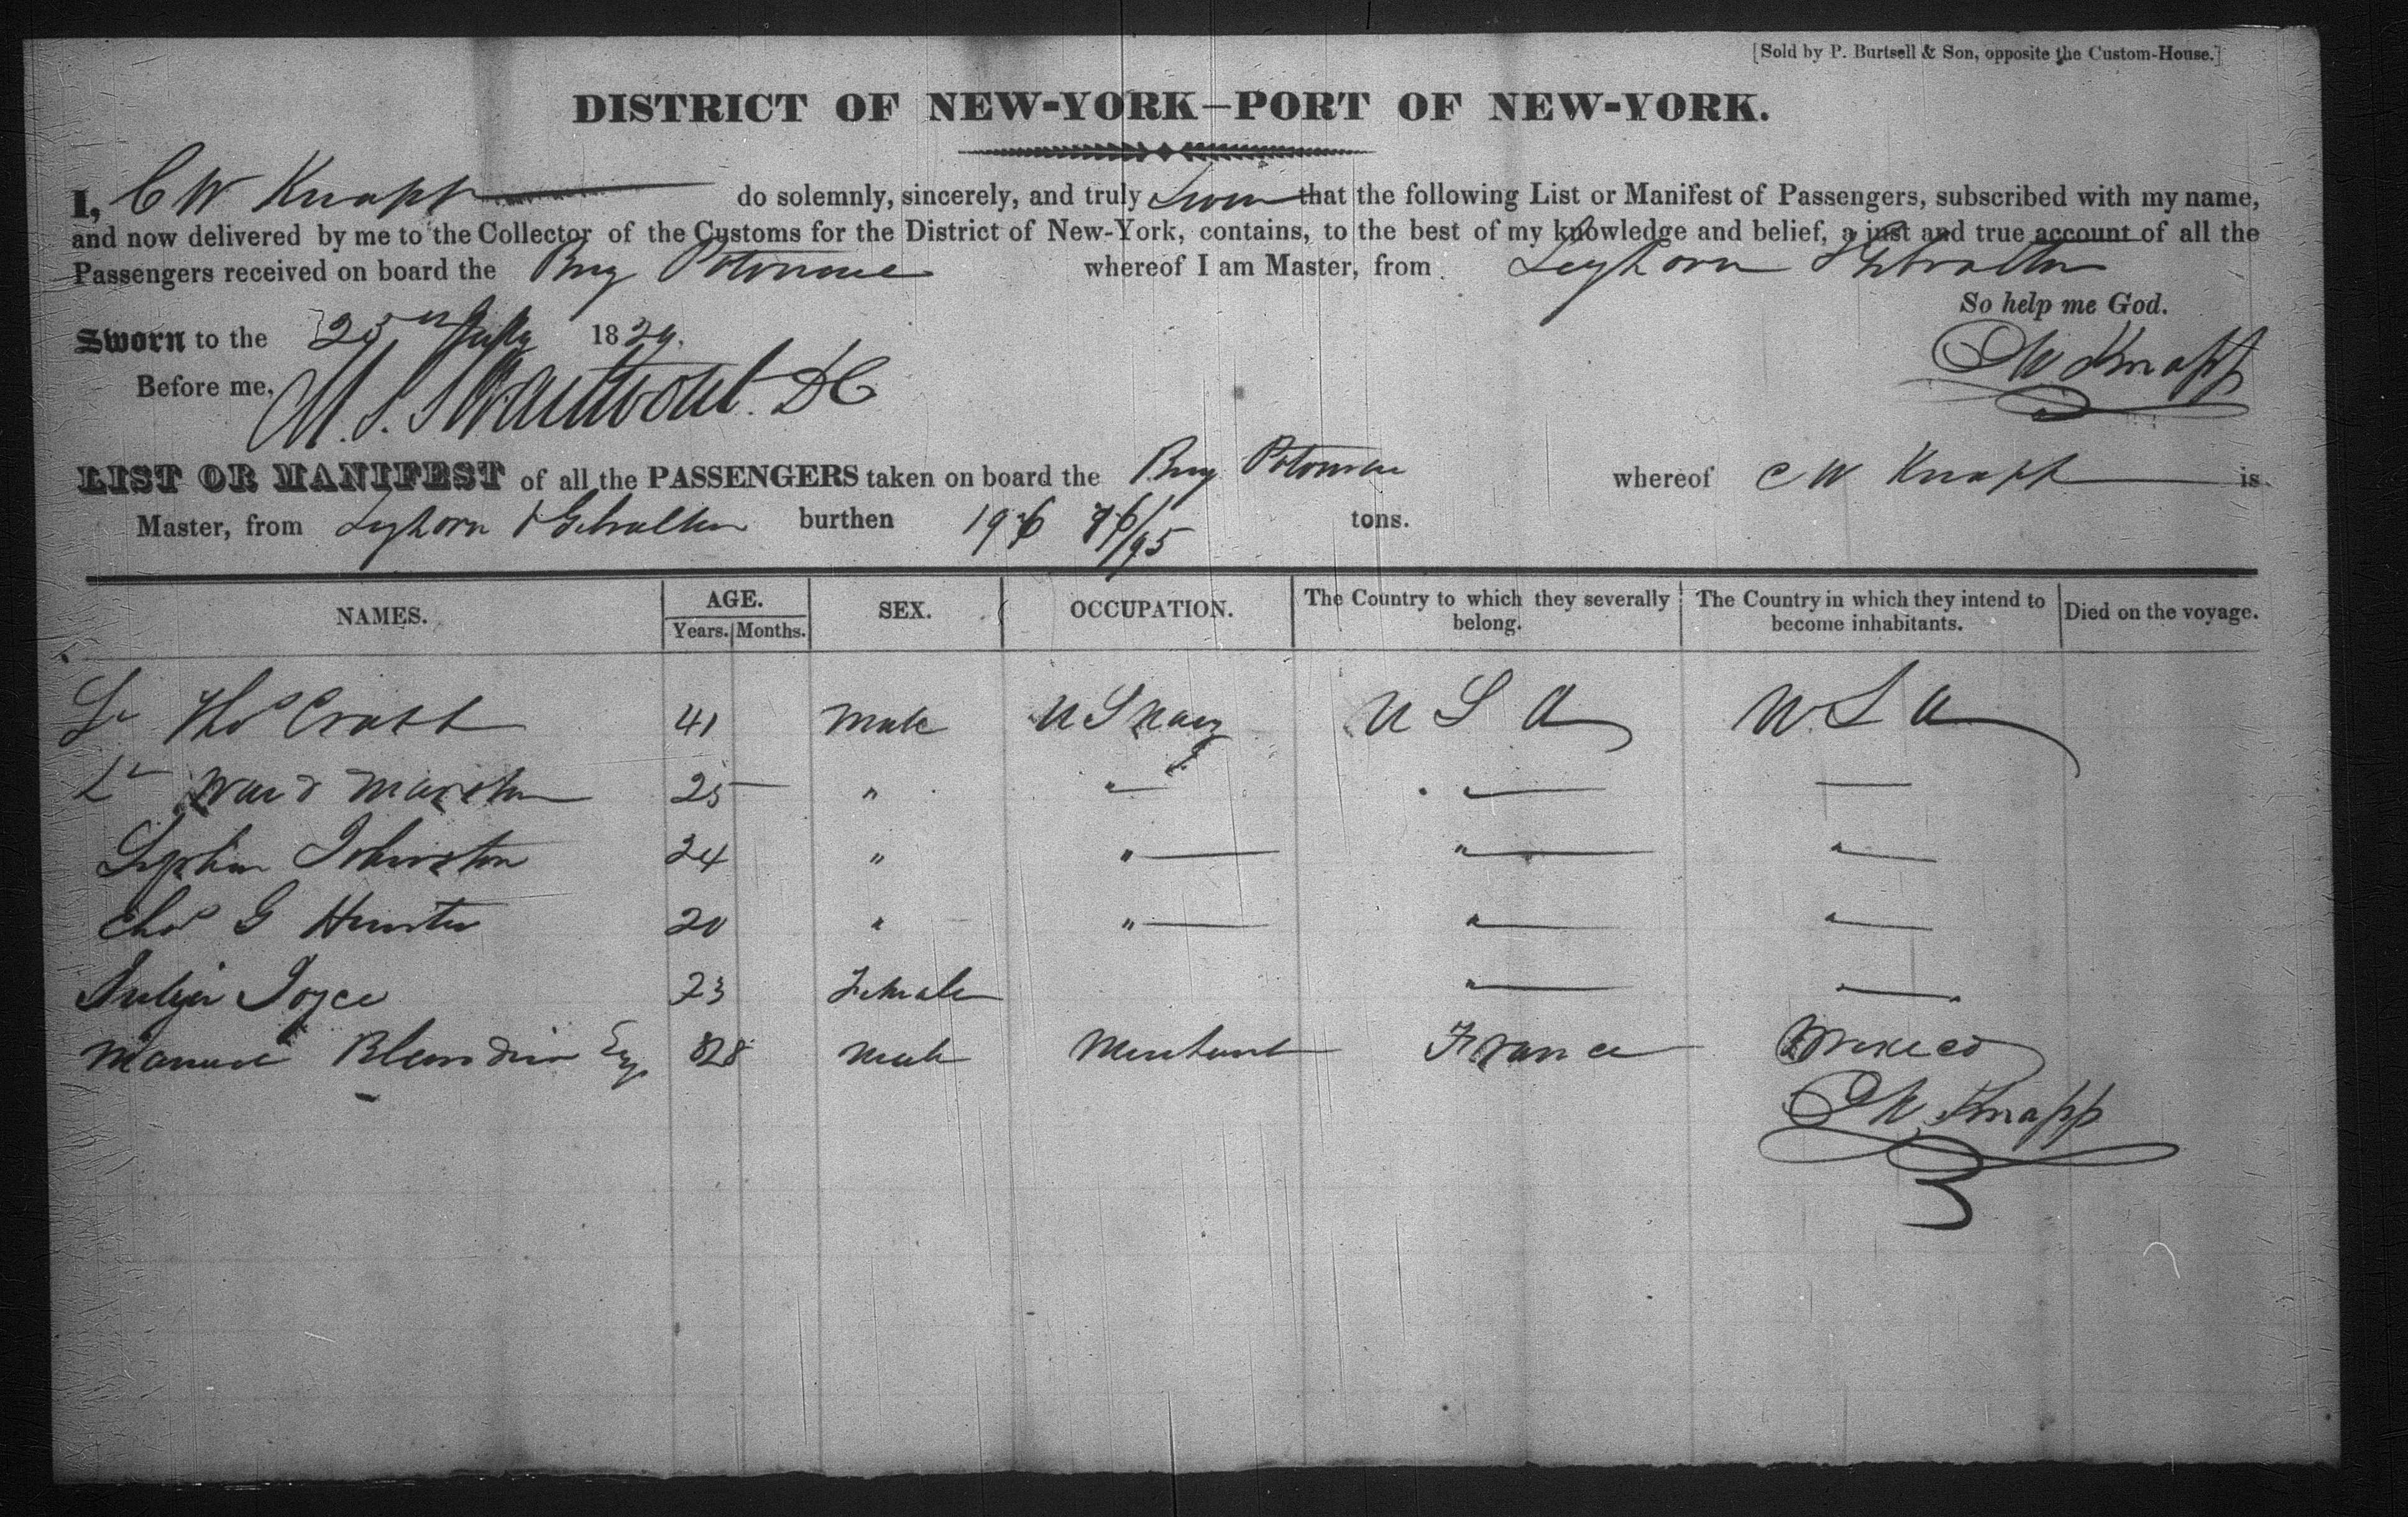 [Sold by P. Burtsell & Son, opposite the Custom-House.]
DISTRICT OF NEW-YORK—PORT OF NEW-YORK.
I, C W Knapp do solemnly, sincerely, and truly Swear that the following List or Manifest of Passengers, subscribed with my name,
and now delivered by me to the Collector of the Customs for the District of New-York, contains, to the best of my knowledge and belief, a just and true account of all the
Passengers received on board the Brig Potomac whereof I am Master, from Leghorn & Gibralter
So help me God.
Sworn to the 25th July 1829.
C W Knapp
Before me, M. S. Swartwout D C
LIST OR MANIFEST of all the PASSENGERS taken on board the Brig Potomac whereof C W Knapp is
Master, from Leghorn & Gibralter burthen 196 86/95 tons.
NAMES. AGE. Years. Months. SEX. OCCUPATION. The Country to which they severally belong. The Country in which they intend to become inhabitants. Died on the voyage.
Lt Thos Crabb 41 Male U S Navy U S A U. S A
Lt Ward Marston 25 " " — —
Johnston 24 " " " "
G Hunter 20 " " " "
Joyce 23 Female " "
Manuel Blandin Esq 28 Male Merchant France Mexico
C W. Knapp